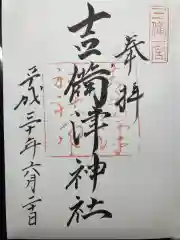 三備一宮
奉拝
吉備津神社
平成三十年六月二日